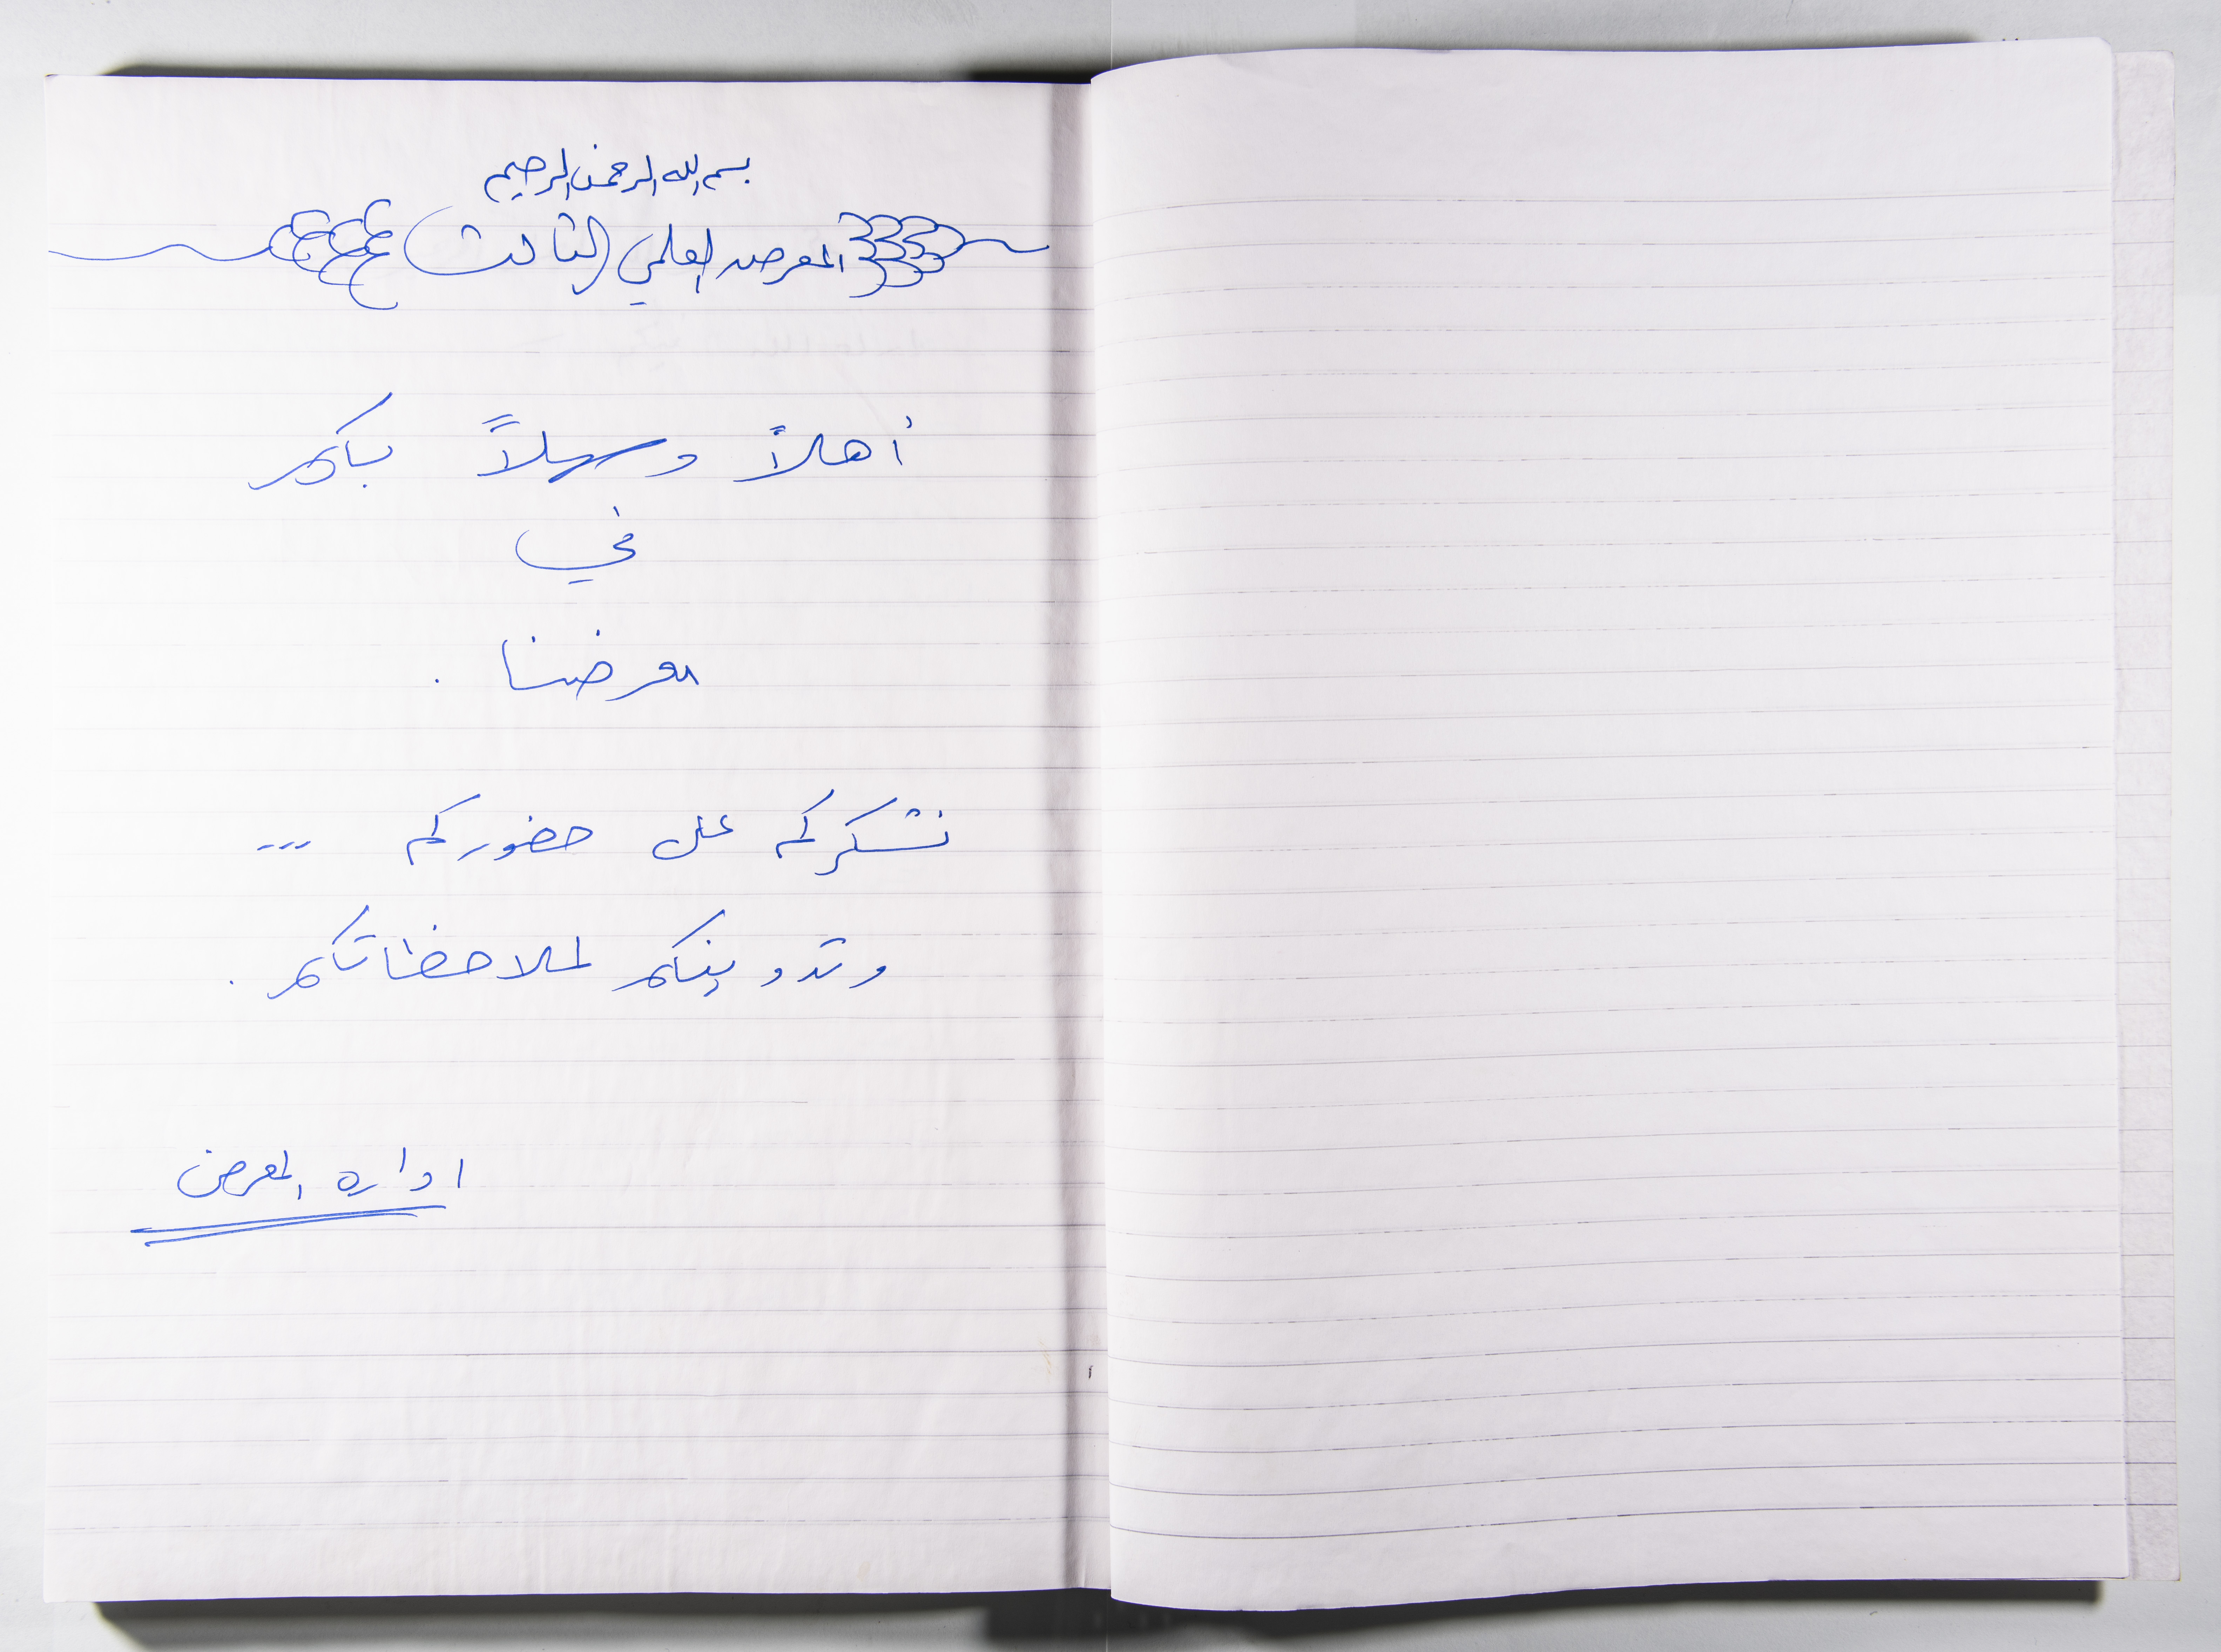 بسم الله الرحمن الرحيم
المعرض العلمي (الثالث)
أهلاً وسهلاً بكم
في
معرضنا .
نشكركم على حضوركم ...
وتدوينكم لملاحظاتكم .
ادارة المعرض